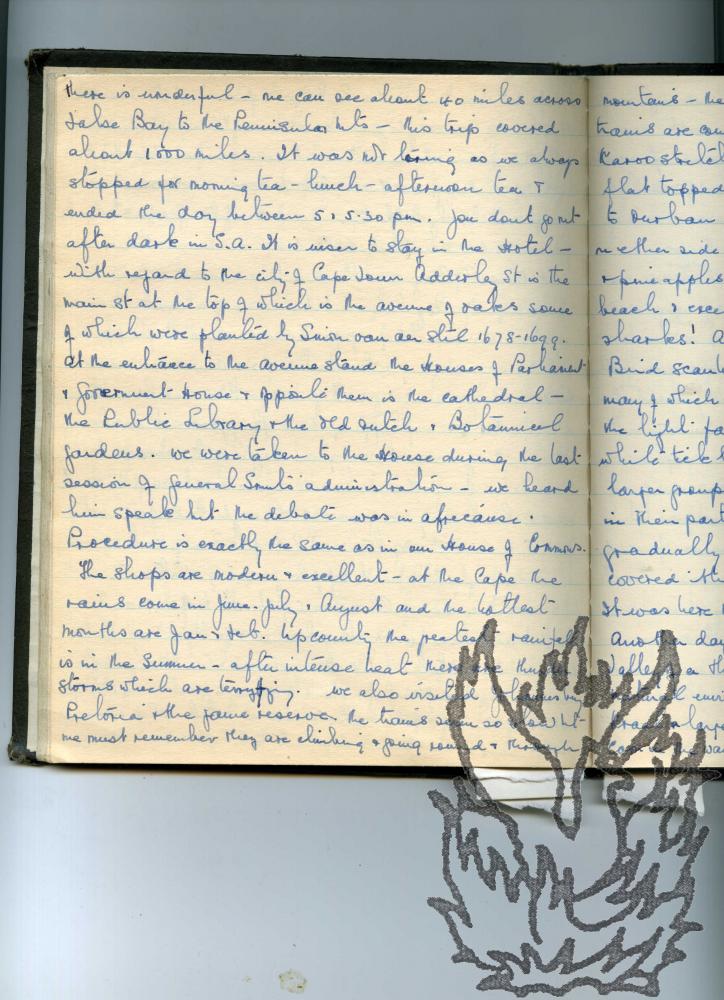 there is wonderful - we can see about 40 miles across
False Bay to the Peninsular Mts - this trip covered
about 1000 miles. It was not tiring as we always
stopped for morning tea - lunch - afternoon tea &
ended the day between 5 & 5.30 pm. You dont go out
after dark in S.A. It is wiser to stay in the Hotel -
With regard to the city of Cape Town Adderley St is the
main st at the top of which is the avenue of oaks some
of which were planted by Simon van der Stil 1678-1699.
At the entrance to the avenue stand the Houses of Parliament
& Government House & opposite them is the cathedral -
the Public Library & the old dutch & Botannical
gardens. We were taken to the House during the last
session of General Smuts administration - we heard
him speak but the debate was in africanse.
Procedure is exactly the same as in our House of Commons.
The shops are modern & excellent - at the Cape the
rains come in June. July & August and the hottest
months are Jan & Feb. Up country the greatest rainfall
is in the Summer - after intense heat there are thunder
storms which are terrifying. We also visited
Pretoria & the game reserve. The trains seem so slow but
we must remember they are climbing & going round & through
mountains - the
trains are
Karoo stretch
flat topped
to Durban
on either side
& pineapples
beach &
sharks! A
Bird
many of which
the light
while tick
larger group
in their part
gradually
covered the
It was here
Another day